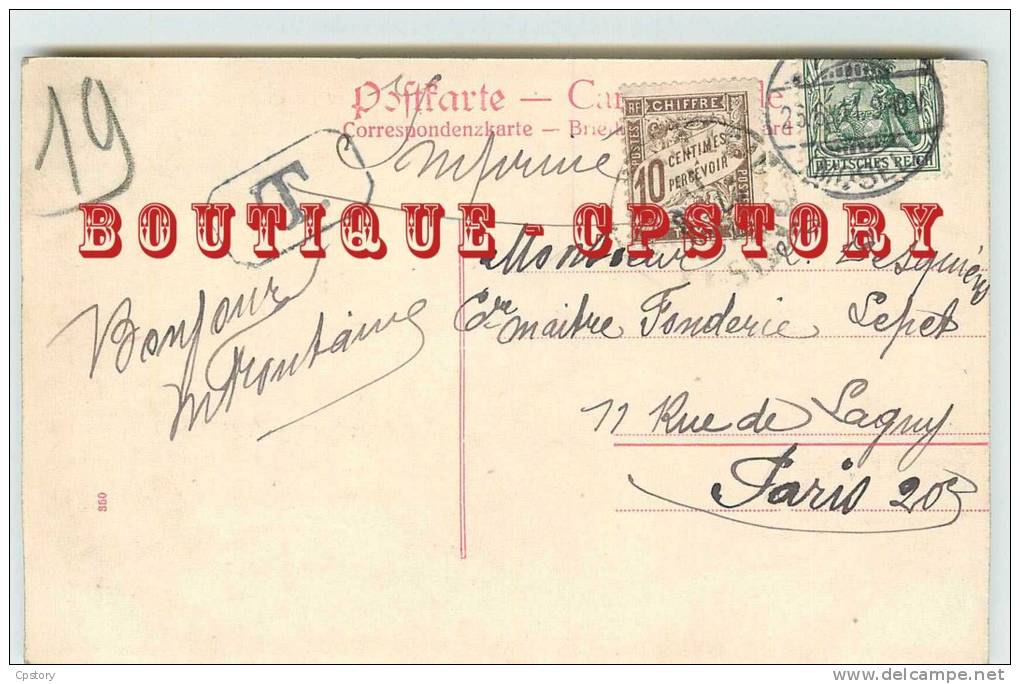 19
Postkarte — Ca
Correspondenzkarte —
Imprimé
T.
CHIFFRE
RF
POSTES
10 CENTIMES
A PERCEVOIR
DEUTSCHES REICH
BOUTIQUE - CPSTORY
Monsieur
maitre Fonderie Lepet
11 Rue de Lagny
Paris 20e
Bonjour
350
Cpstory
delcampe.net